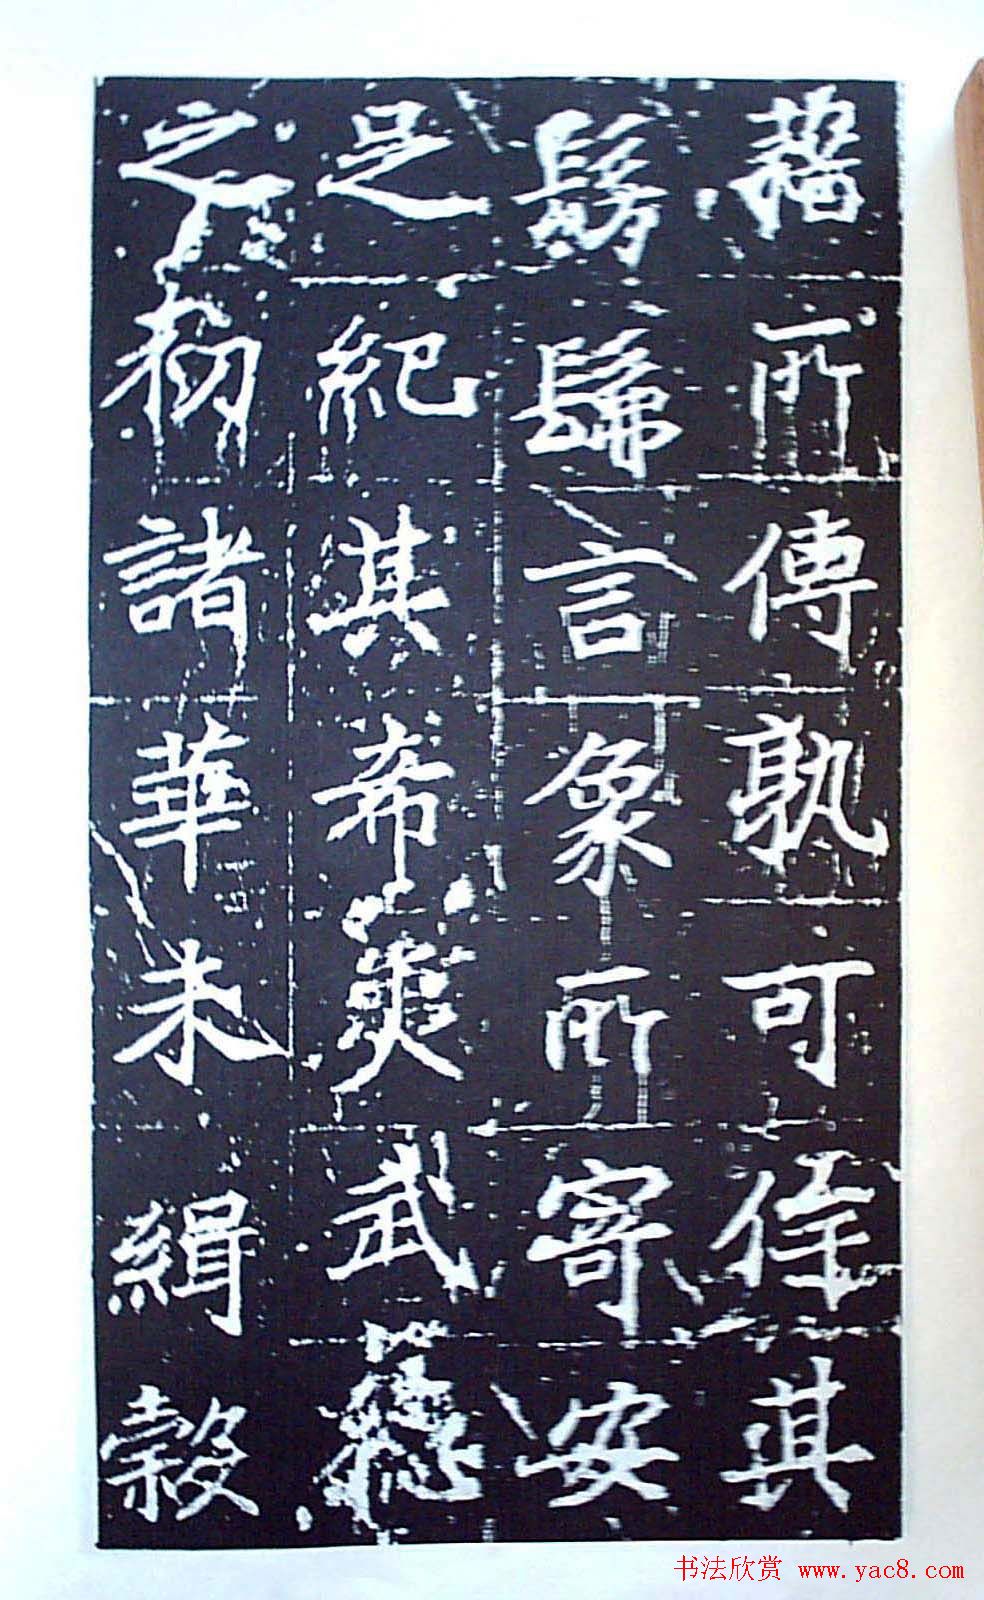 藉所傳孰可詳其
髣髴言象所寄安
足紀其希夷武德
之初諸華未緝穀
书法欣赏 www.yac8.com